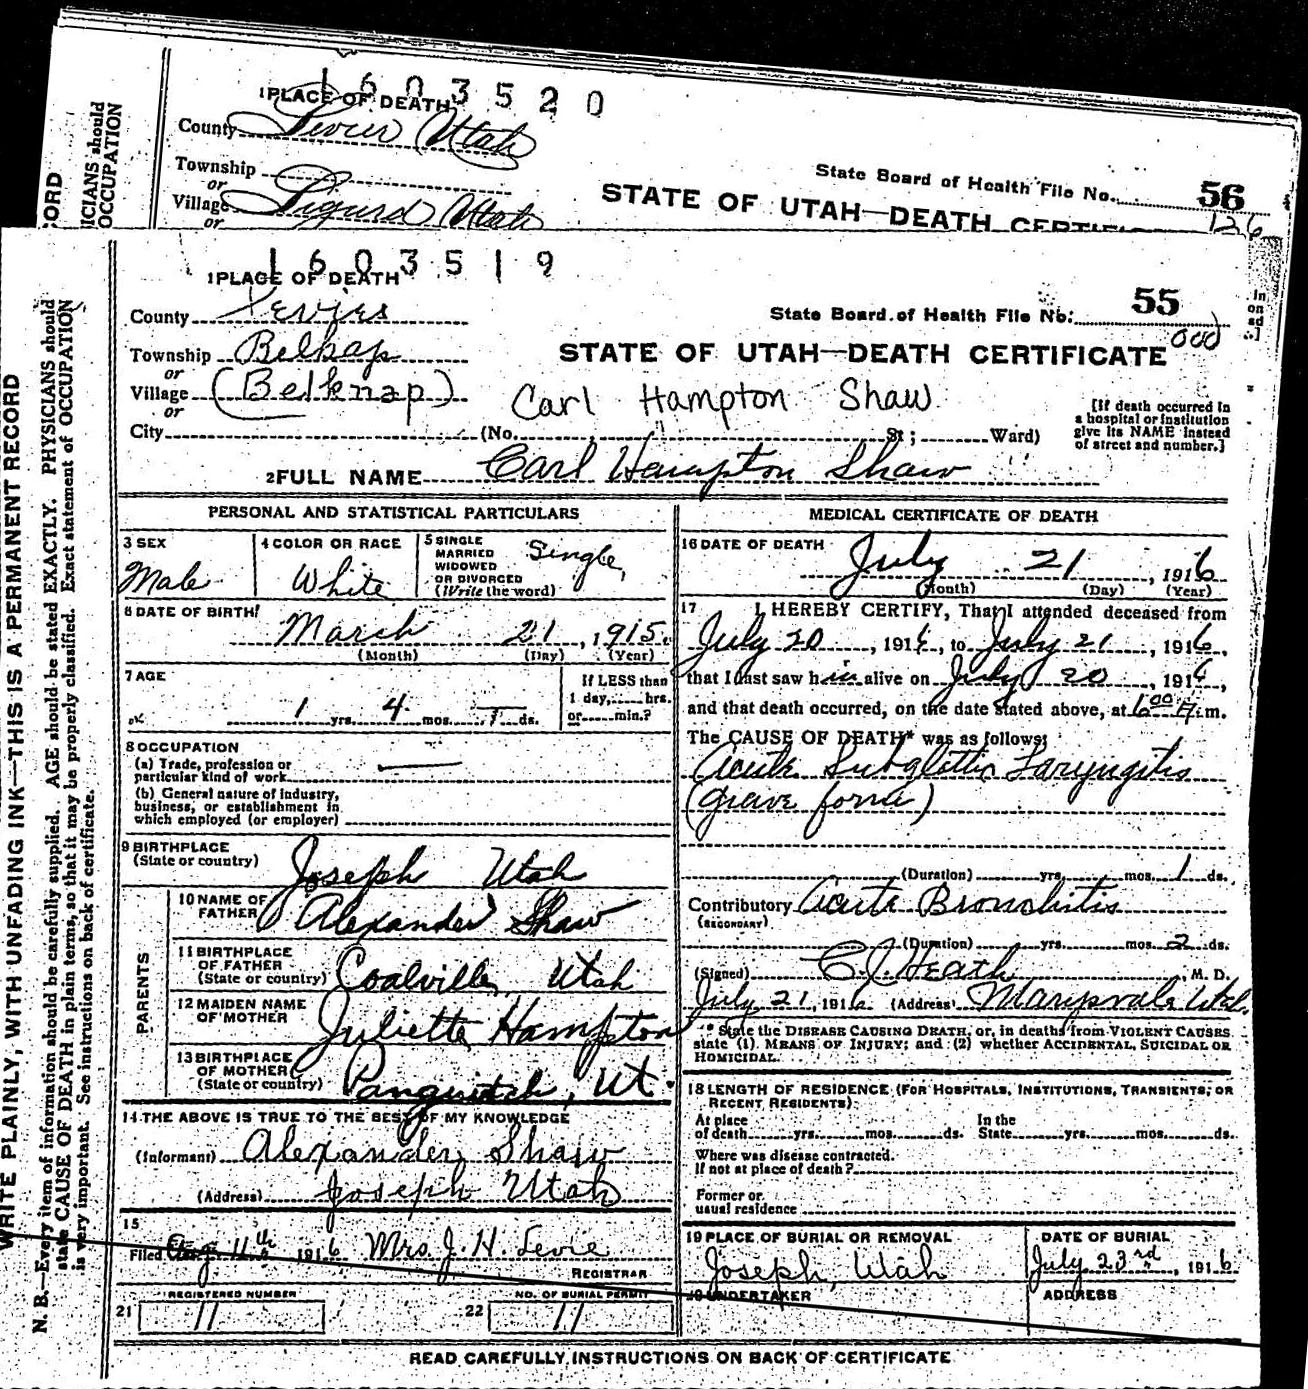 1 6 0 3 5 2 0
1 PLACE OF DEATH
County Sevier (Utah)
Township
or
Village Sigurd (Utah)
or
State Board of Health File No. 56
126
STATE OF UTAH—DEATH CERTIFIC
CORD
ICIANS should
OCCUPATION
1 6 0 3 5 1 9
1 PLACE OF DEATH
County Sevier
State Board of Health File No. 55
000
Township Belkap
STATE OF UTAH—DEATH CERTIFICATE
or
Village (Belknap)
or
Carl Hampton Shaw
City (No. St; Ward)
[If death occurred in
a hospital or institution
give its NAME instead
of street and number.]
2 FULL NAME Carl Hampton Shaw
PERSONAL AND STATISTICAL PARTICULARS
3 SEX
Male
4 COLOR OR RACE
White
5 SINGLE
MARRIED
WIDOWED
OR DIVORCED
(Write the word)
Single
6 DATE OF BIRTH
March 21, 1915.
(Month) (Day) (Year)
7 AGE
1 yrs. 4 mos. ds.
If LESS than
1 day, hrs.
or min.?
8 OCCUPATION
(a) Trade, profession or
particular kind of work
(b) General nature of industry,
business, or establishment in
which employed (or employer)
9 BIRTHPLACE
(State or country)
Joseph Utah
PARENTS
10 NAME OF
FATHER
Alexander Shaw
11 BIRTHPLACE
OF FATHER
(State or country)
Coalville, Utah
12 MAIDEN NAME
OF MOTHER
Juliette Hampton
13 BIRTHPLACE
OF MOTHER
(State or country)
Panguitch, Ut.
14 THE ABOVE IS TRUE TO THE BEST OF MY KNOWLEDGE
(Informant) Alexander Shaw
(Address) Joseph Utah
15
Filed Aug 11th 1916 Mrs. J. H. Levie
REGISTRAR
REGISTERED NUMBER
21 11
NO. OF BURIAL PERMIT
22 11
MEDICAL CERTIFICATE OF DEATH
16 DATE OF DEATH
July 21, 1916
(Month) (Day) (Year)
17 I HEREBY CERTIFY, That I attended deceased from
July 20, 1916, to July 21, 1916,
that I last saw him alive on July 20, 1916,
and that death occurred, on the date stated above, at 6 00 A. m.
The CAUSE OF DEATH* was as follows:
Acute Subglottic Laryngitis
(grave form)
(Duration) yrs. mos. 1 ds.
Contributory Acute Bronchitis
(SECONDARY)
(Duration) yrs. mos. 2 ds.
(Signed) C. J. Heath, M. D.
July 21, 1916 (Address) Marysvale Utah.
* State the DISEASE CAUSING DEATH, or, in deaths from VIOLENT CAUSES
state (1) MEANS OF INJURY; and (2) whether ACCIDENTAL, SUICIDAL OR
HOMICIDAL.
18 LENGTH OF RESIDENCE (FOR HOSPITALS, INSTITUTIONS, TRANSIENTS, OR
RECENT RESIDENTS)
At place
of death yrs. mos. ds.
In the
State yrs. mos. ds.
Where was disease contracted.
If not at place of death?
Former or
usual residence
19 PLACE OF BURIAL OR REMOVAL
Joseph, Utah
DATE OF BURIAL
July 23rd, 1916
20 UNDERTAKER
ADDRESS
READ CAREFULLY INSTRUCTIONS ON BACK OF CERTIFICATE
WRITE PLAINLY, WITH UNFADING INK—THIS IS A PERMANENT RECORD
N. B.—Every item of information should be carefully supplied. AGE should be stated EXACTLY. PHYSICIANS should
state CAUSE OF DEATH in plain terms, so that it may be properly classified. Exact statement of OCCUPATION
is very important. See instructions on back of certificate.